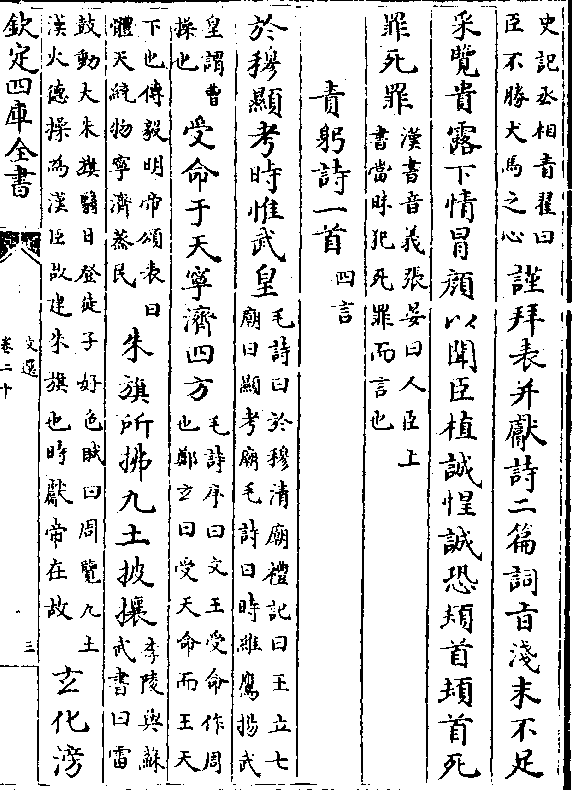 史記丞相青翟曰
臣不勝犬馬之心
謹拜表并獻詩二篇詞旨淺末不足
采覽貴露下情冒顔以聞臣植誠惶誠恐頓首頓首死
罪死罪
漢書音義張晏曰人臣上
書當昧犯死罪而言也
責躬詩一首
四言
於穆顯考時惟武皇
毛詩曰於穆清廟禮記曰王立七
廟曰顯考廟毛詩曰時維鷹揚武
皇謂曹
操也
受命于天寧濟四方
毛詩序曰文王受命作周
也鄭玄曰受天命而王天
下也傅毅明帝頌表曰
體天統物寧濟蒸民
朱旗所拂九土披攘
李陵與蘇
武書曰雷
鼓動天朱旗翳日登徒子好色賦曰周覽九土
漢火德操為漢臣故建朱旗也時獻帝在故
玄化滂
欽定四庫全書
文選
卷二十
三